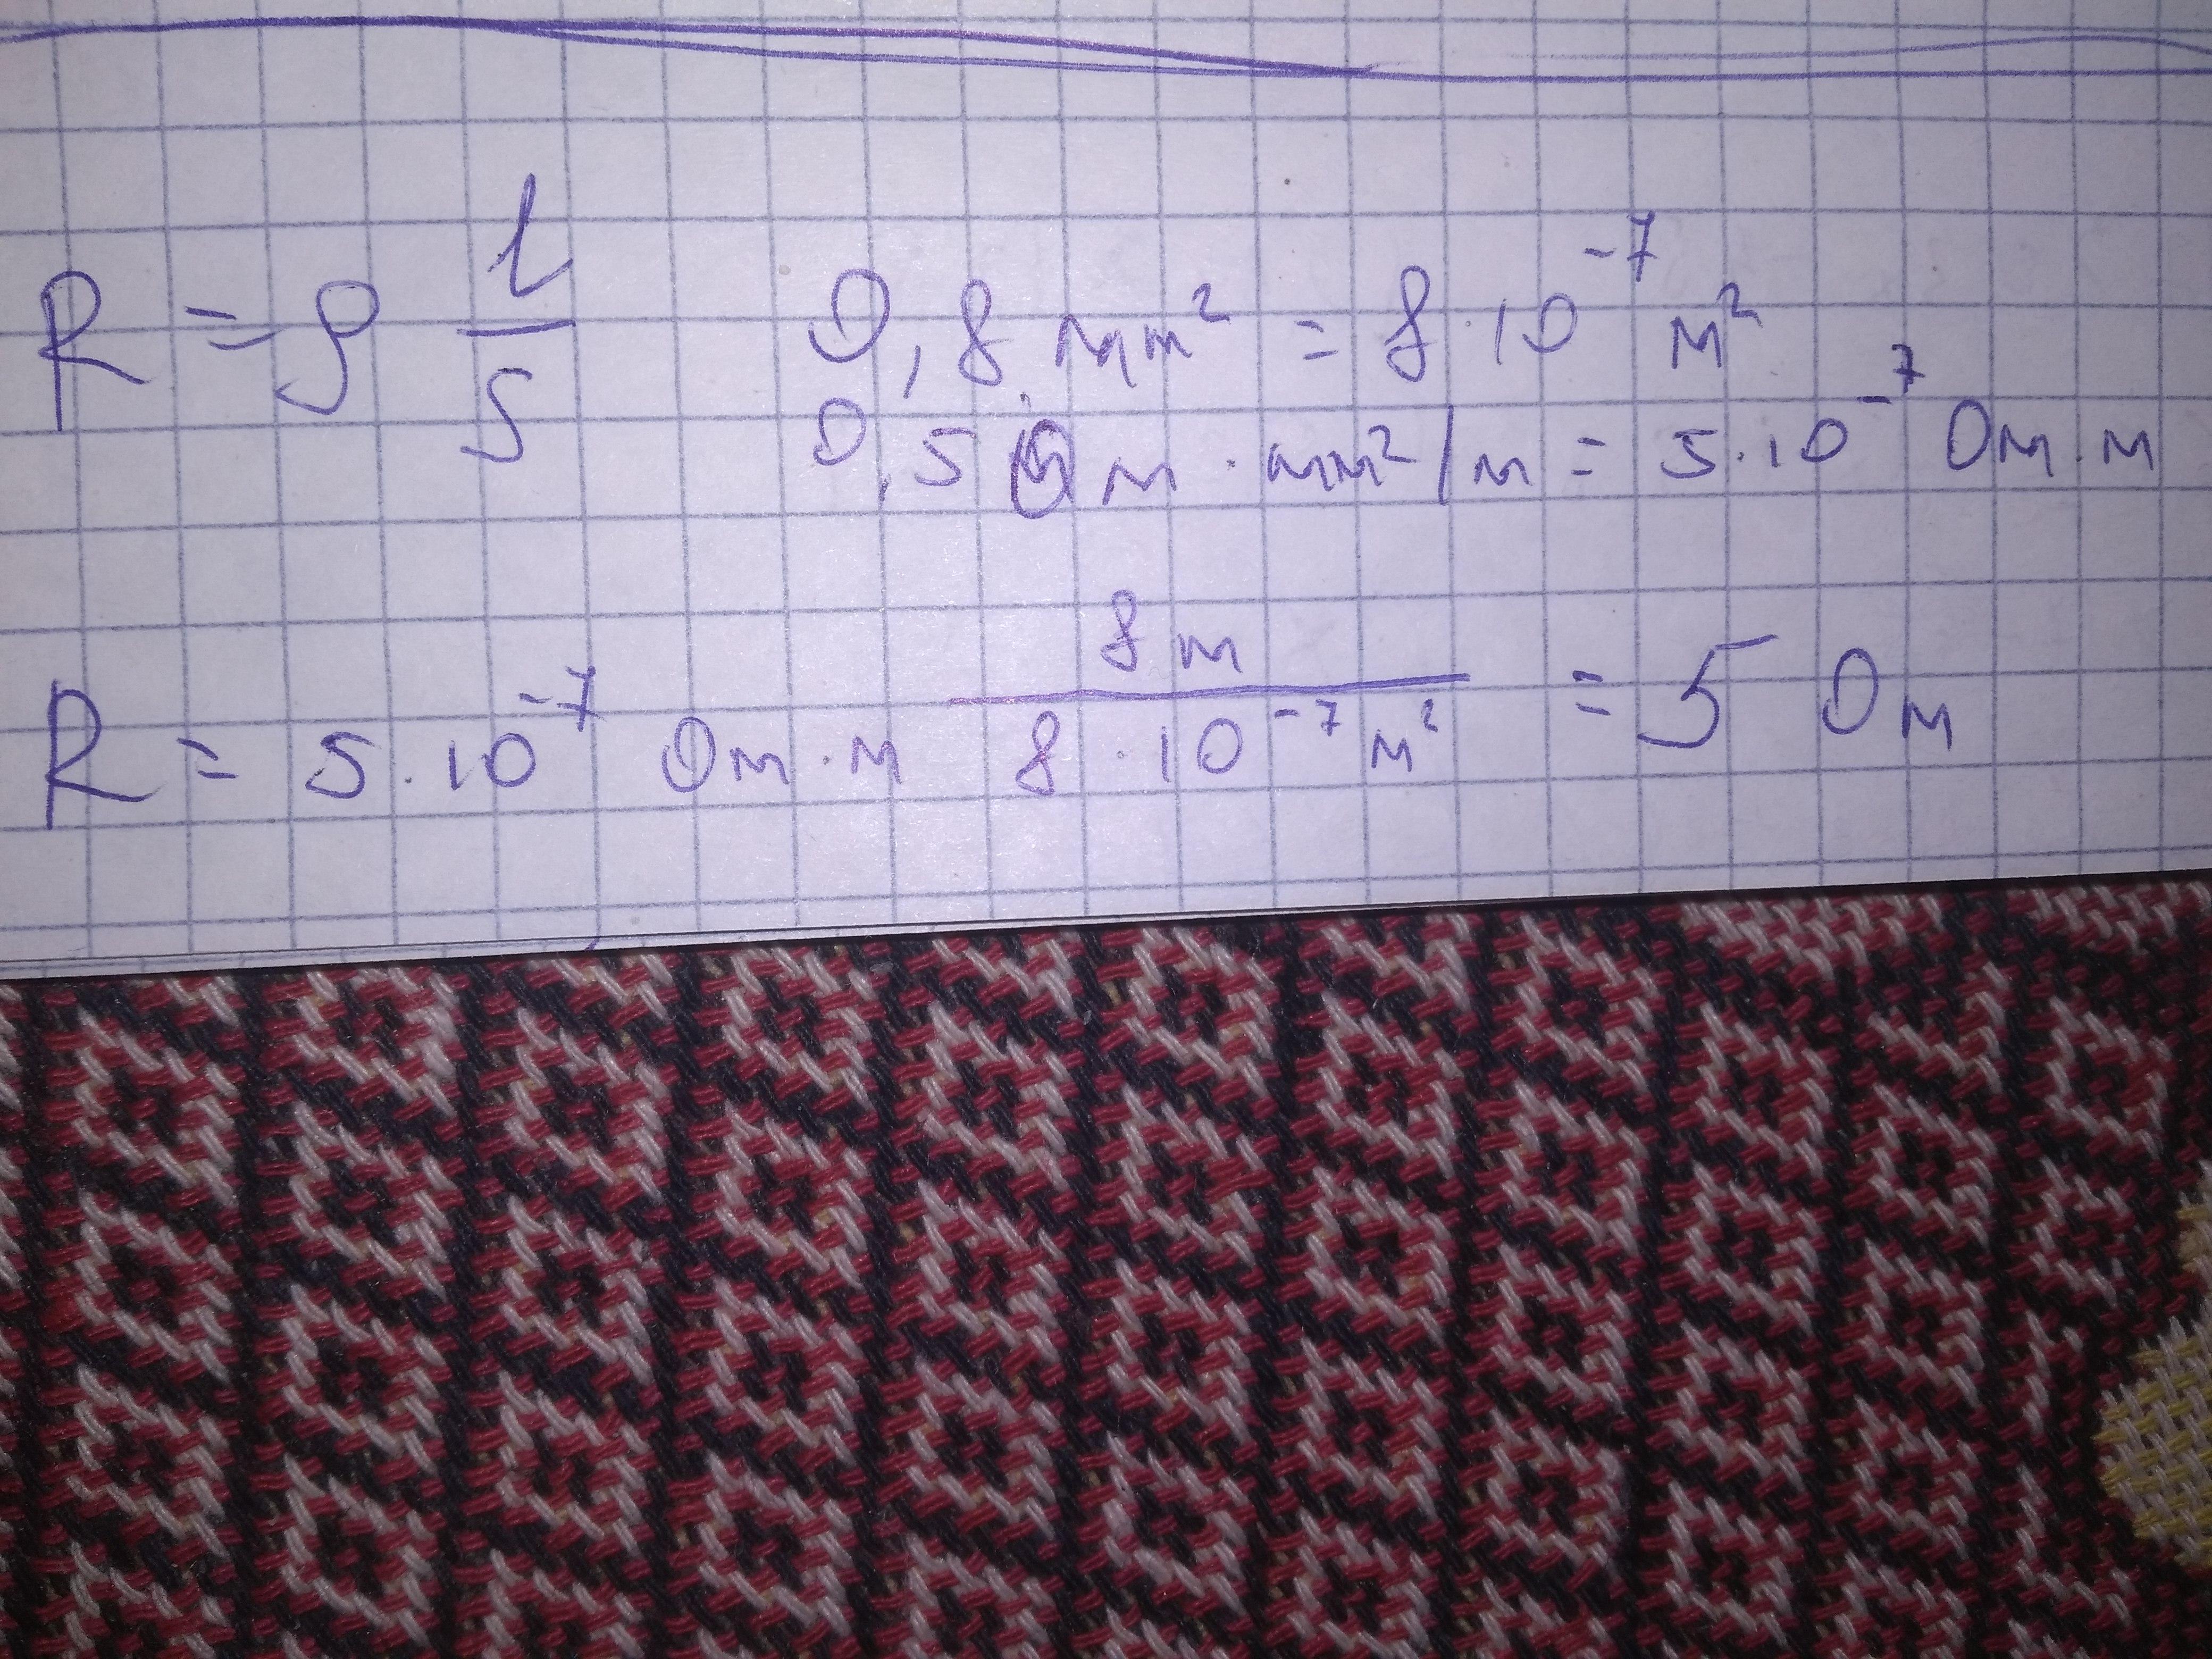 R = ρ l/S
0,8 мм² = 8·10⁻⁷ м²
0,5 Ом·мм²/м = 5·10⁻⁷ Ом·м
R = 5·10⁻⁷ Ом·м 8м/8·10⁻⁷м² = 5 Ом